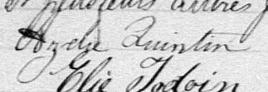 et plusieurs autres
Ozelie Quintin
Elie Jodoin